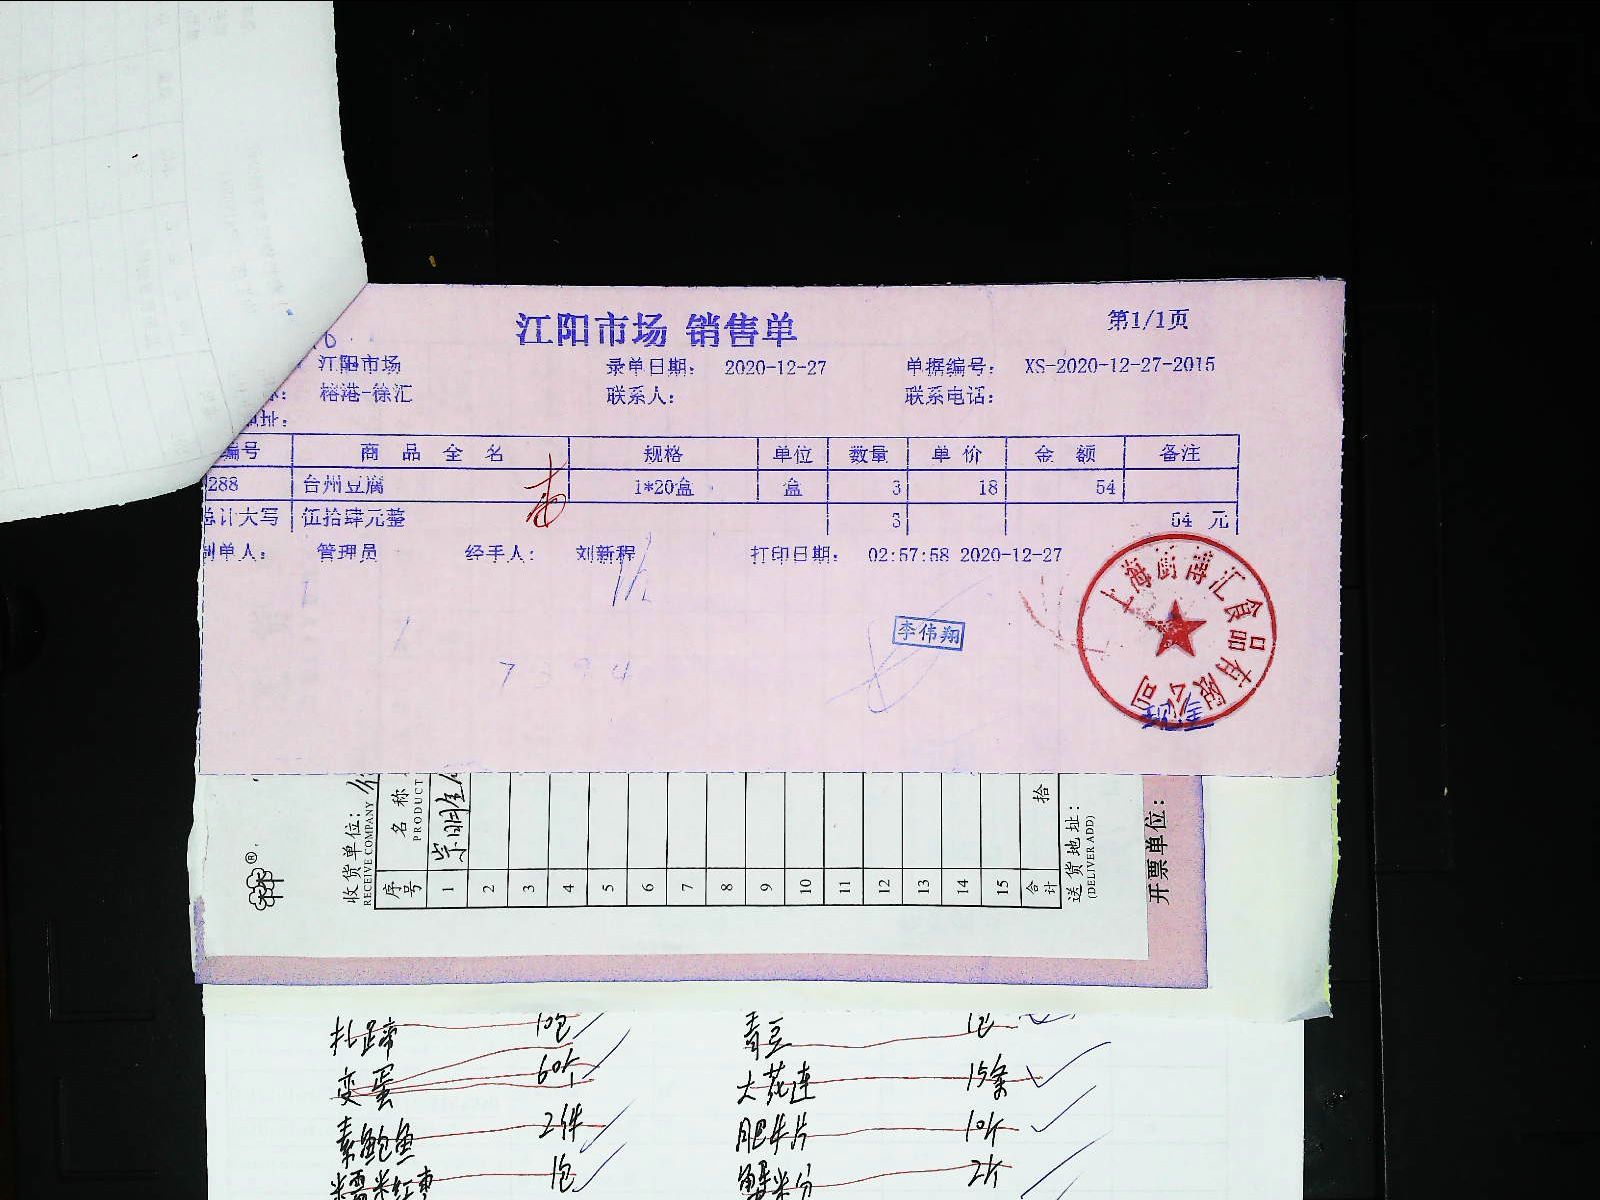 江阳市场 销售单
第1/1页
江阳市场 录单日期： 2020-12-27 单据编号： XS-2020-12-27-2015
榕港-徐汇 联系人： 联系电话：
地址：
编号 商品全名 规格 单位 数量 单价 金额 备注
288 台州豆腐 1*20盒 盒 3 18 54
总计大写 伍拾肆元整 3 54 元
制单人： 管理员 经手人： 刘新程 打印日期： 02:57:58 2020-12-27
李伟翔
上海厨博汇食品有限公司
7394
收货单位：
RECEIVE COMPANY
序号 名称
PRODUCT
1 崇明
2
3
4
5
6
7
8
9
10
11
12
13
14
15
合计 拾
送货地址：
(DELIVER ADD)
开票单位：
扎蹄 10包 青豆 1包
变蛋 60个 大花连 15条
素鲍鱼 2件 肥牛片 10个
糯米红枣 1包 蟹米分 2个